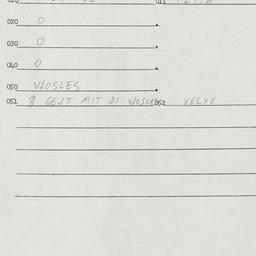 020 0
030 0
040 0
050 VIOSLES
051 $ GEJT MIT DI VIOSLES 052 VELXE